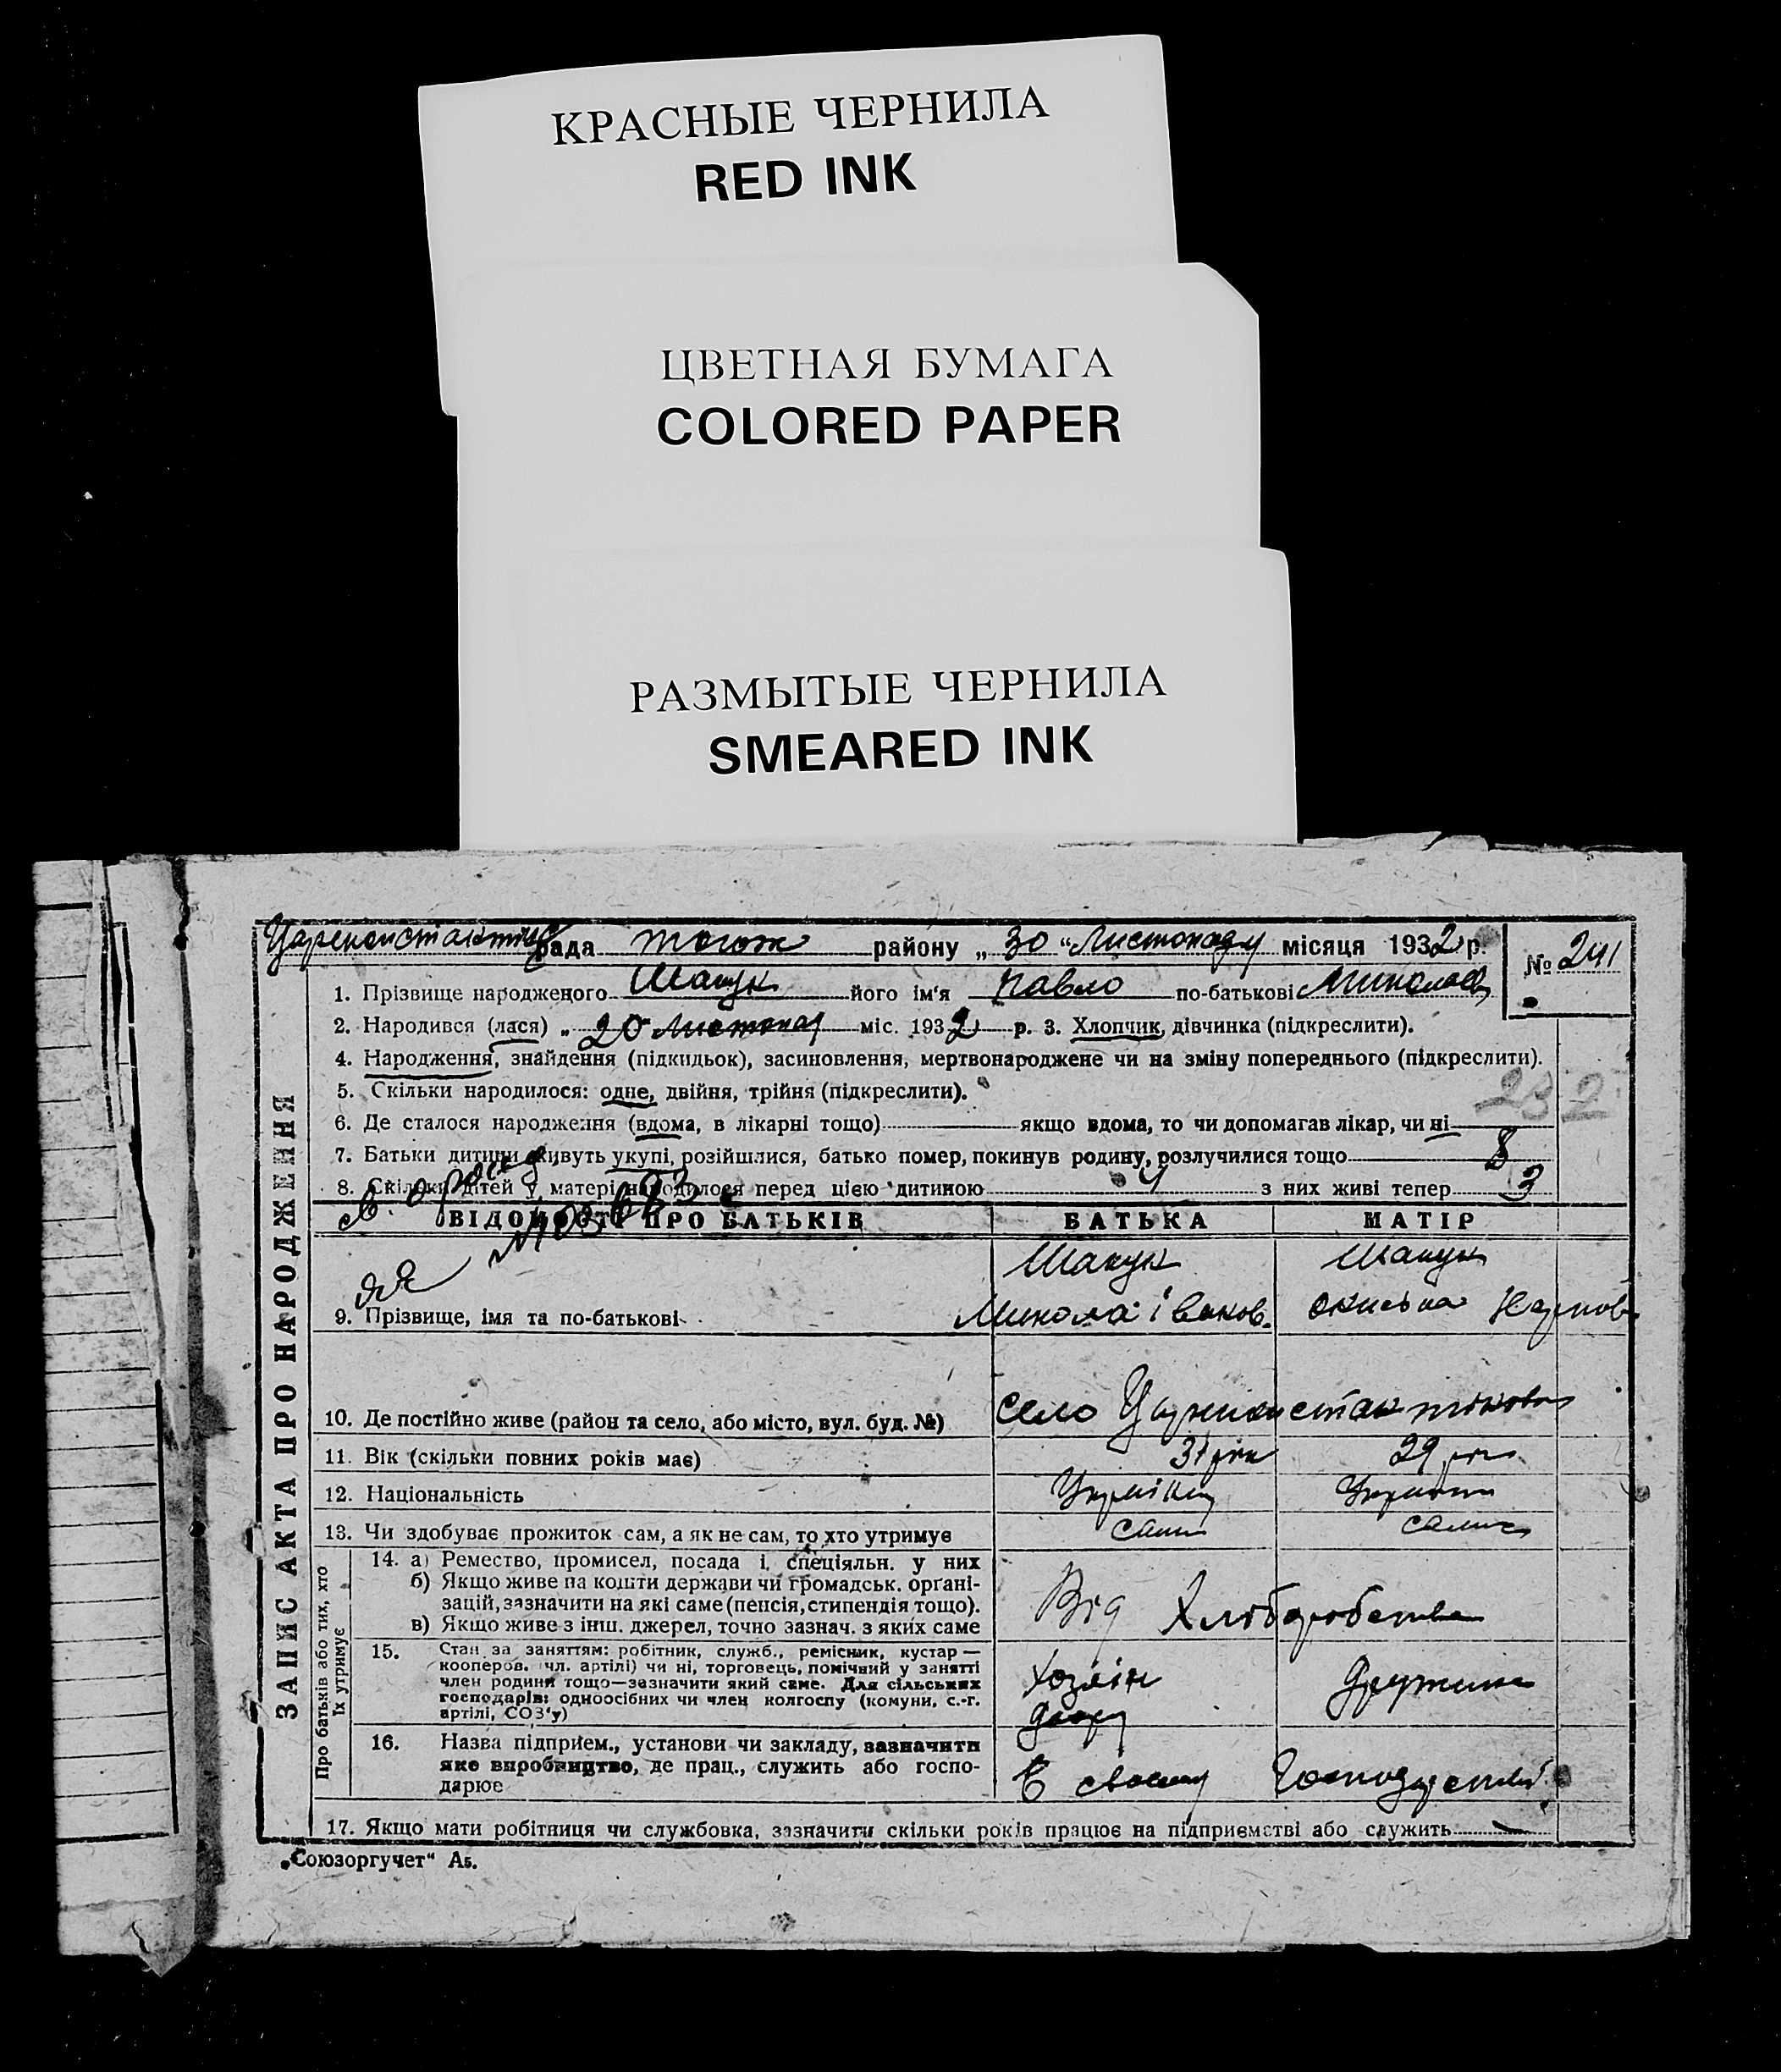 КРАСНЫЕ ЧЕРНИЛА
RED INK
ЦВЕТНАЯ БУМАГА
COLORED PAPER
РАЗМЫТЫЕ ЧЕРНИЛА
SMEARED INK
рада тогож району „ 30 “ Листопаду місяця 1932 р. № 241
1. Прізвище народженого його ім'я Павло по-батькові
2. Народився (лася) „ 20 міс. 1932 р. 3. Хлопчик, дівчинка (підкреслити).
4. Народження, знайдення (підкидьок), засиновлення, мертвонароджене чи на зміну попереднього (підкреслити).
5. Скільки народилося: одне, двійня, трійня (підкреслити).
232
6. Де сталося народження (вдома, в лікарні тощо) якщо вдома, то чи допомагав лікар, чи ні
7. Батьки дитини живуть укупі, розійшлися, батько помер, покинув родину, розлучилися тощо 8
8. Скільки дітей у матері народилося перед цією дитиною 4 з них живі тепер 3
ВІДОМОСТІ ПРО БАТЬКІВ БАТЬКА МАТІР
9. Прізвище, імя та по-батькові Микола Іванов.
10. Де постійно живе (район та село, або місто, вул. буд. №) село
11. Вік (скільки повних років має) 31 рік 29 рік
12. Національність
13. Чи здобуває прожиток сам, а як не сам, то хто утримує
14. а) Ремество, промисел, посада і спеціяльн. у них
б) Якщо живе на кошти держави чи громадськ. органі-
зацій, зазначити на які саме (пенсія, стипендія тощо).
в) Якщо живе з інш. джерел, точно зазнач. з яких саме
Від Хліборобства
15. Стан за заняттям: робітник, служб., ремісник, кустар —
кооперов. чл. артілі) чи ні, торговець, помічний у занятті
член родини тощо—зазначити який саме. Для сільських
господарів: одноосібних чи член колгоспу (комуни, с.-г.
артілі, СОЗ'у)
Хозяін двору Дружина
16. Назва підприєм., установи чи закладу, зазначити
яке виробництво, де прац., служить або госпо-
дарює
В своєму Господарстві
17. Якщо мати робітниця чи службовка, зазначити скільки років працює на підприємстві або служить
ЗАПИС АКТА ПРО НАРОДЖЕННЯ
Про батьків або тих, хто
їх утримує
„Союзоргучет“ А5.